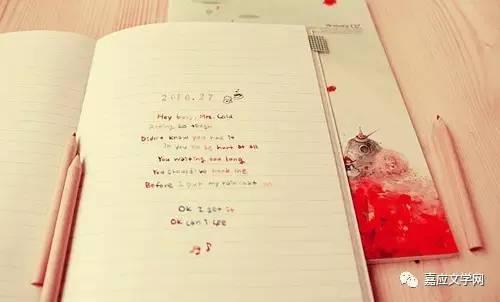 2010.27
Hey baby, Mrs. Cold
Acting so tough
Didn't know you had it
In you to be hurt at all
You waiting too long
You should've hook me
Before I put my raincoat on
Ok I get it
Ok can I see
嘉应文学网